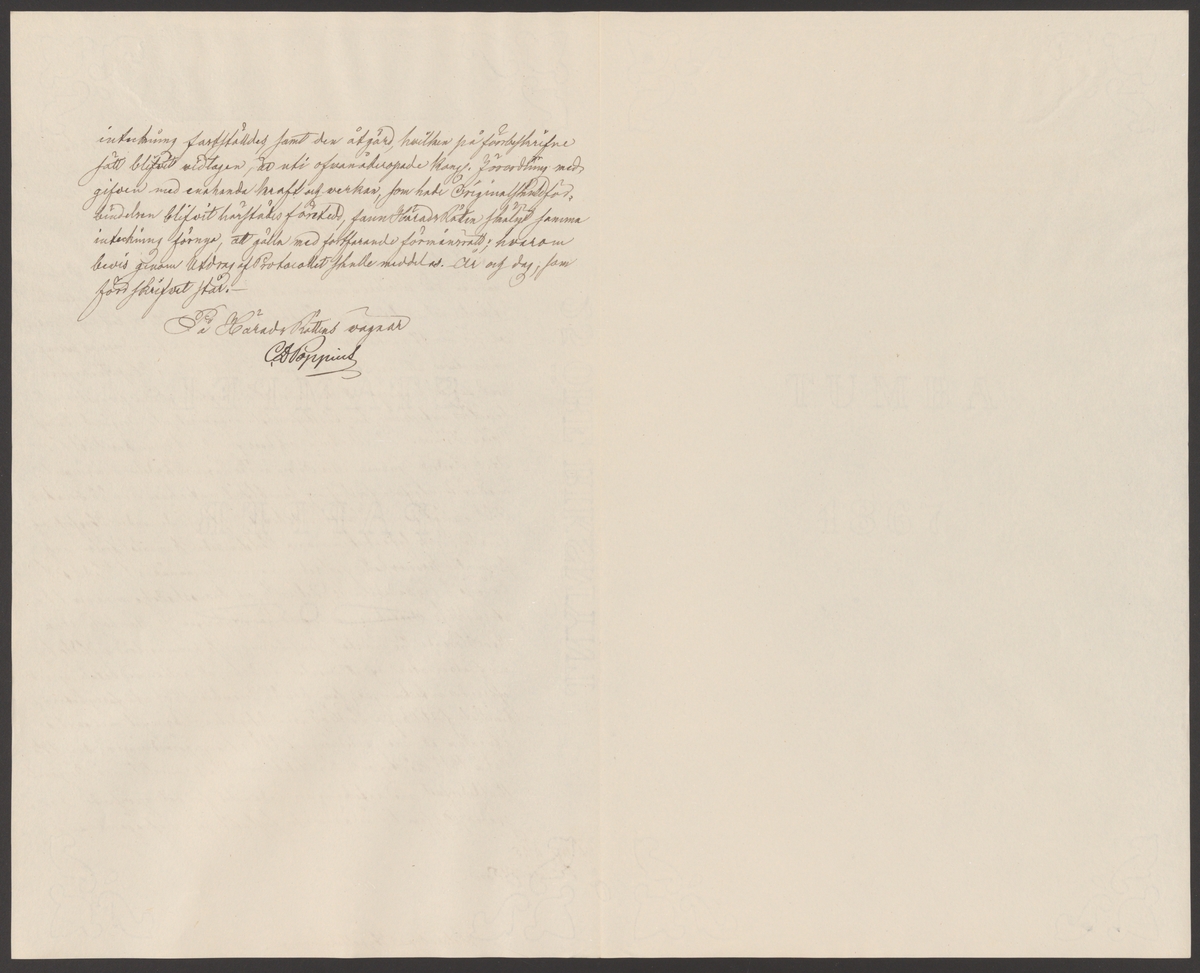 inteckning fastställdes samt den åtgärd, hvilken på förebeskrifne
sätt blifvit vidtagen, är uti ofvanåberopade Kongl. Förordning med-
gifven med enahanda kraft och verkan, som hade Originalskuldför-
bindelsen blifvit härstädes företedd, fann Härads Rätten skäligt samma
inteckning förnya, att gälla med fortfarande förmånsrätt; hvarom
bevis genom Utdrag af Protocollet skulle meddelas. År och dag, som
förr skrifvet står.—
På Härads Rättens vägnar
C. D. Poppius